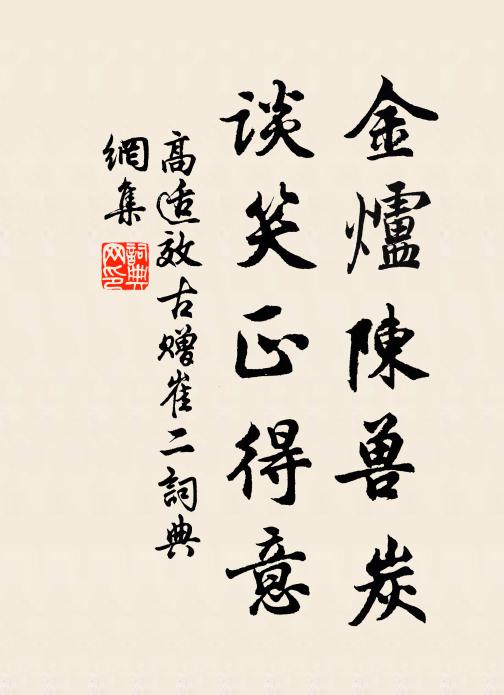 金爐陳兽炭
谈笑正得意
高适效古赠崔二詞典
網集
詞典网印